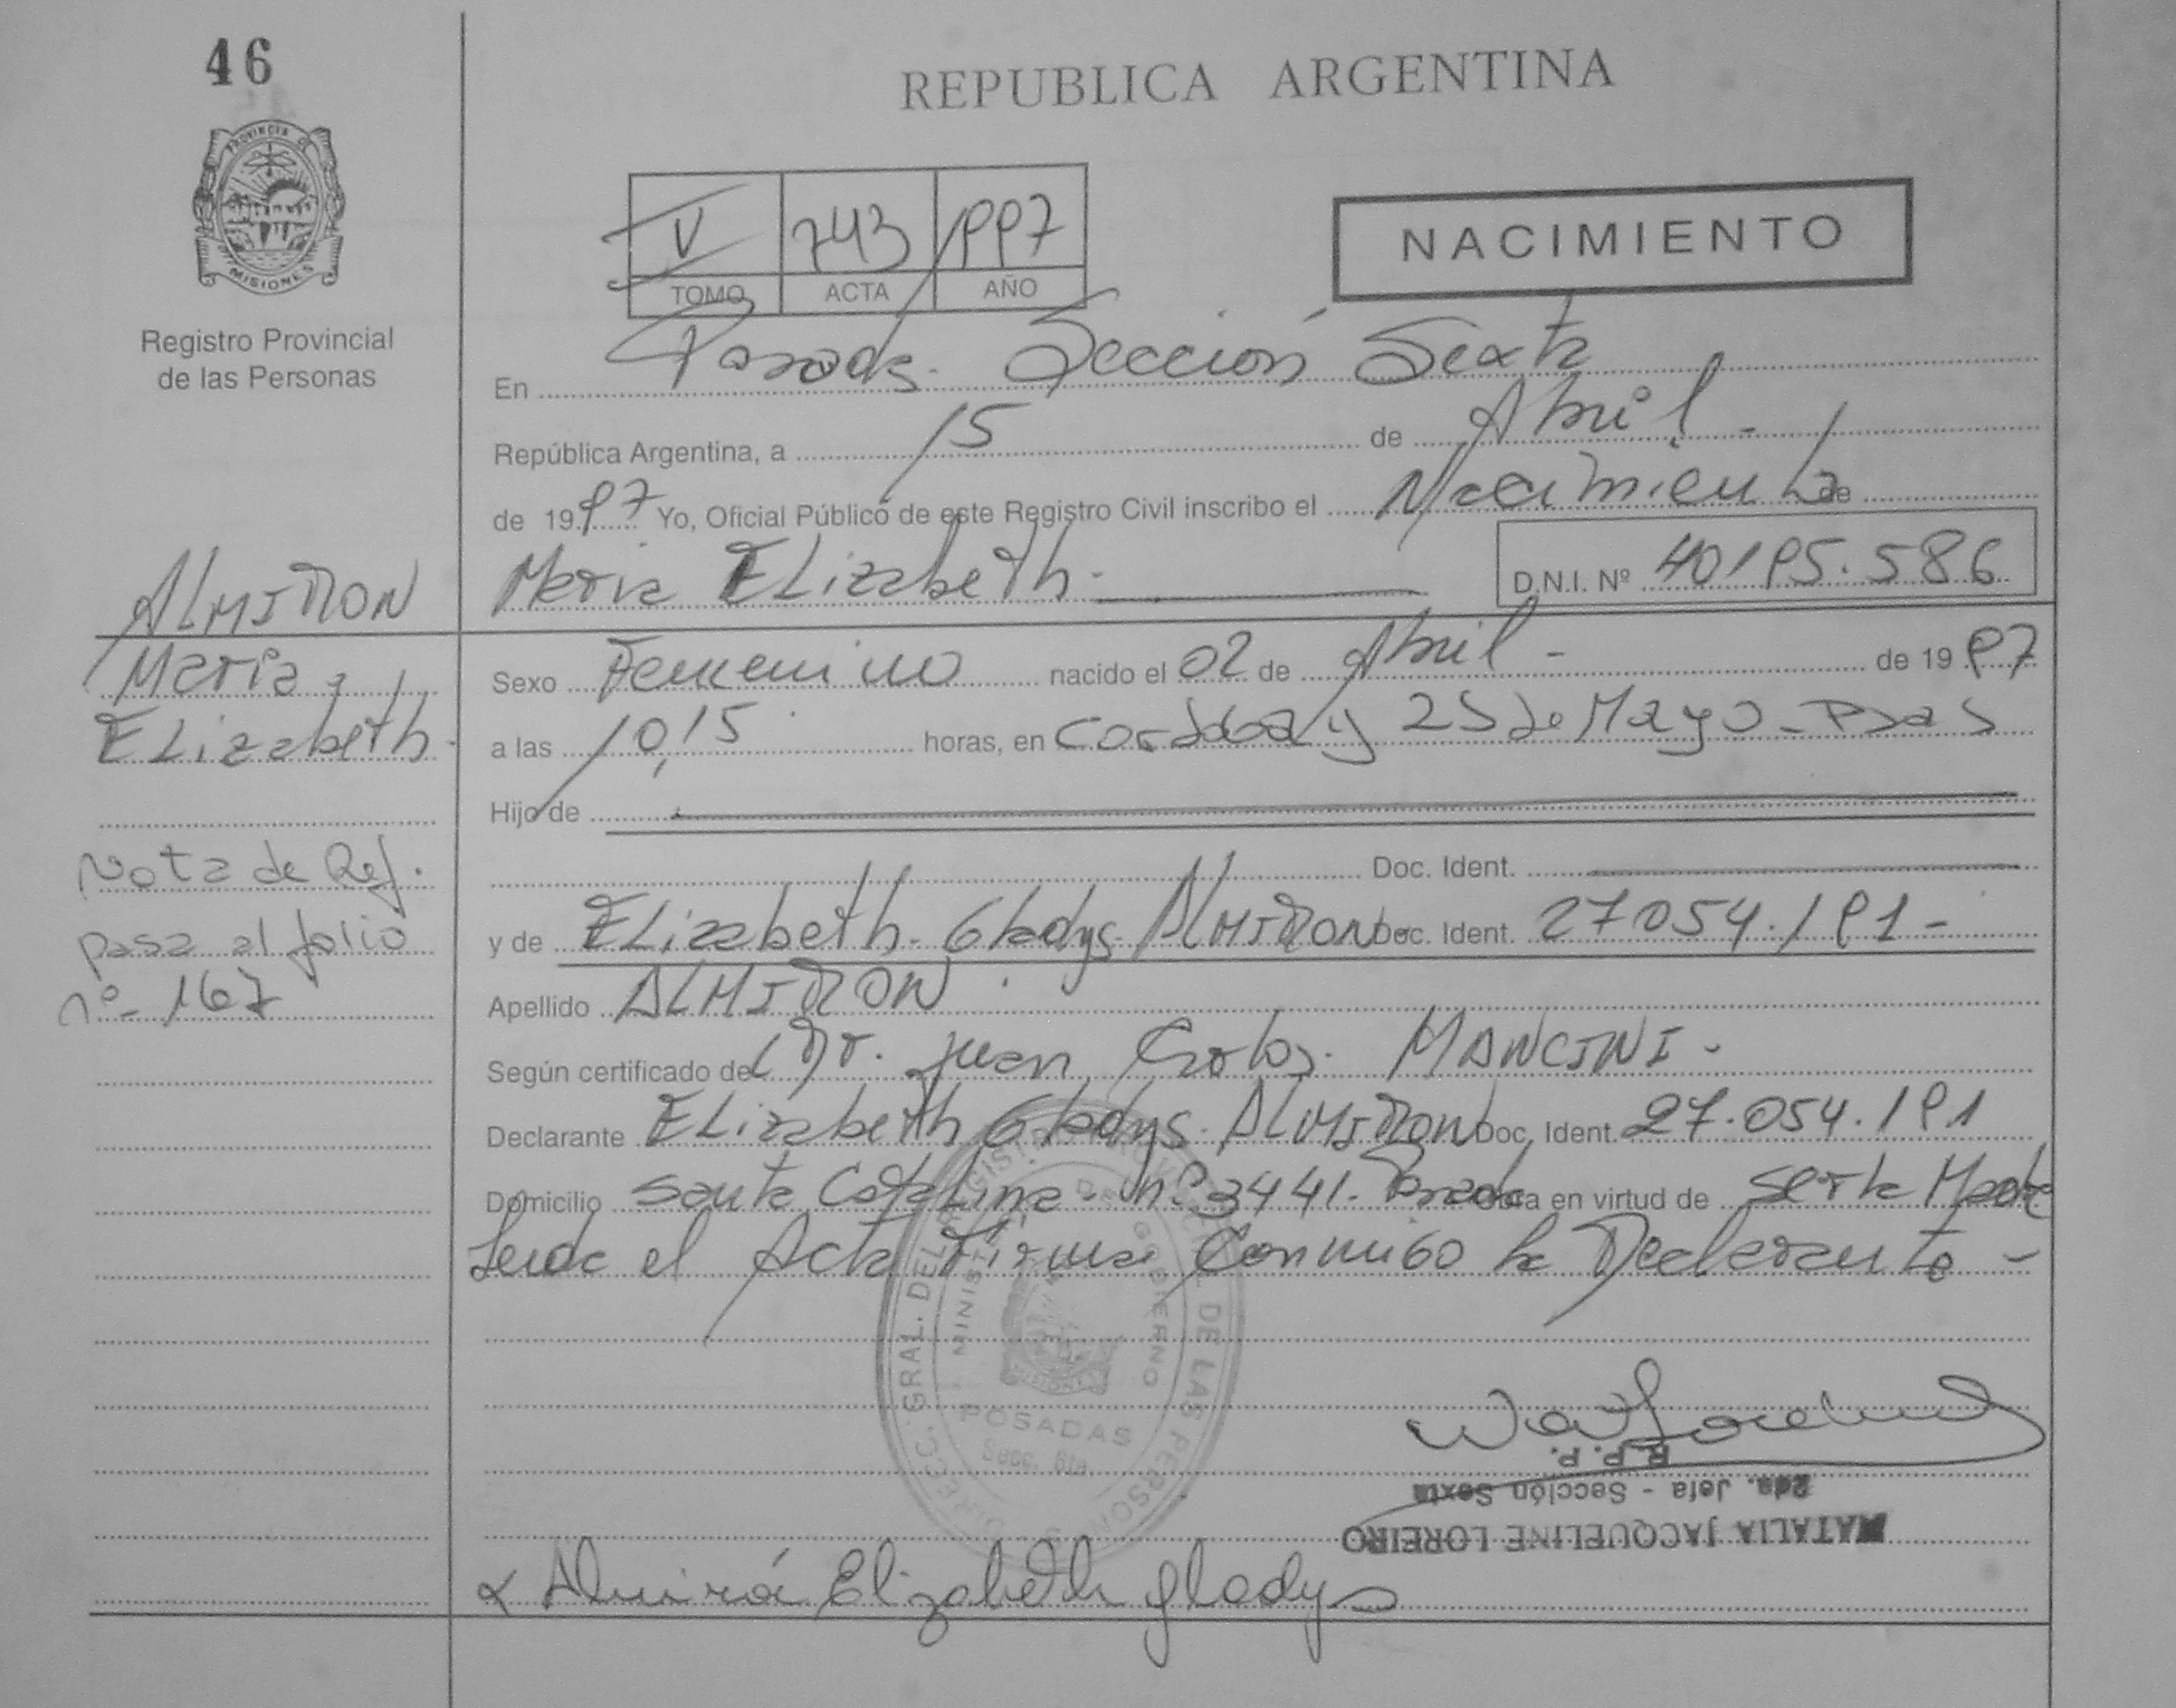 46
REPUBLICA ARGENTINA
PROVINCIA DE
MISIONES
Registro Provincial
de las Personas
V 743 1997
TOMO ACTA AÑO
NACIMIENTO
En Posadas. Sección Sexta
República Argentina, a 15 de Abril -
de 1997 Yo, Oficial Público de este Registro Civil inscribo el Nacimiento de
Maria Elizabeth.
D.N.I. Nº 40195.586
ALMIRON
Maria
Elizabeth.
Nota de Ref.
pasa al folio
nº- 167
Sexo Femenino nacido el 02 de Abril - de 1997
a las 10,15 horas, en Cordoba y 25 de Mayo - Psdas
Hijo de
Doc. Ident.
y de Elizabeth. Gladys. ALMIRON Doc. Ident. 27054.191-
Apellido ALMIRON.
Según certificado del Dr. Juan Carlos. MANCINI -
Declarante Elizabeth Gladys. ALMIRON Doc. Ident. 27.054.191
Domicilio Santa Catalina - nº 3441. Posadas en virtud de ser la Madre
Leida el Acta Firma Conmigo la Declarante -
DIRECC. GRAL. DEL REGISTRO PROVINCIAL DE LAS PERSONAS
MINISTERIO DE GOBIERNO
MISIONES
POSADAS
Secc. 6ta.
R. P. P.
2da. Jefa - Sección Sexta
NATALIA JACQUELINE LOREIRO
x Almirón Elizabeth Gladys